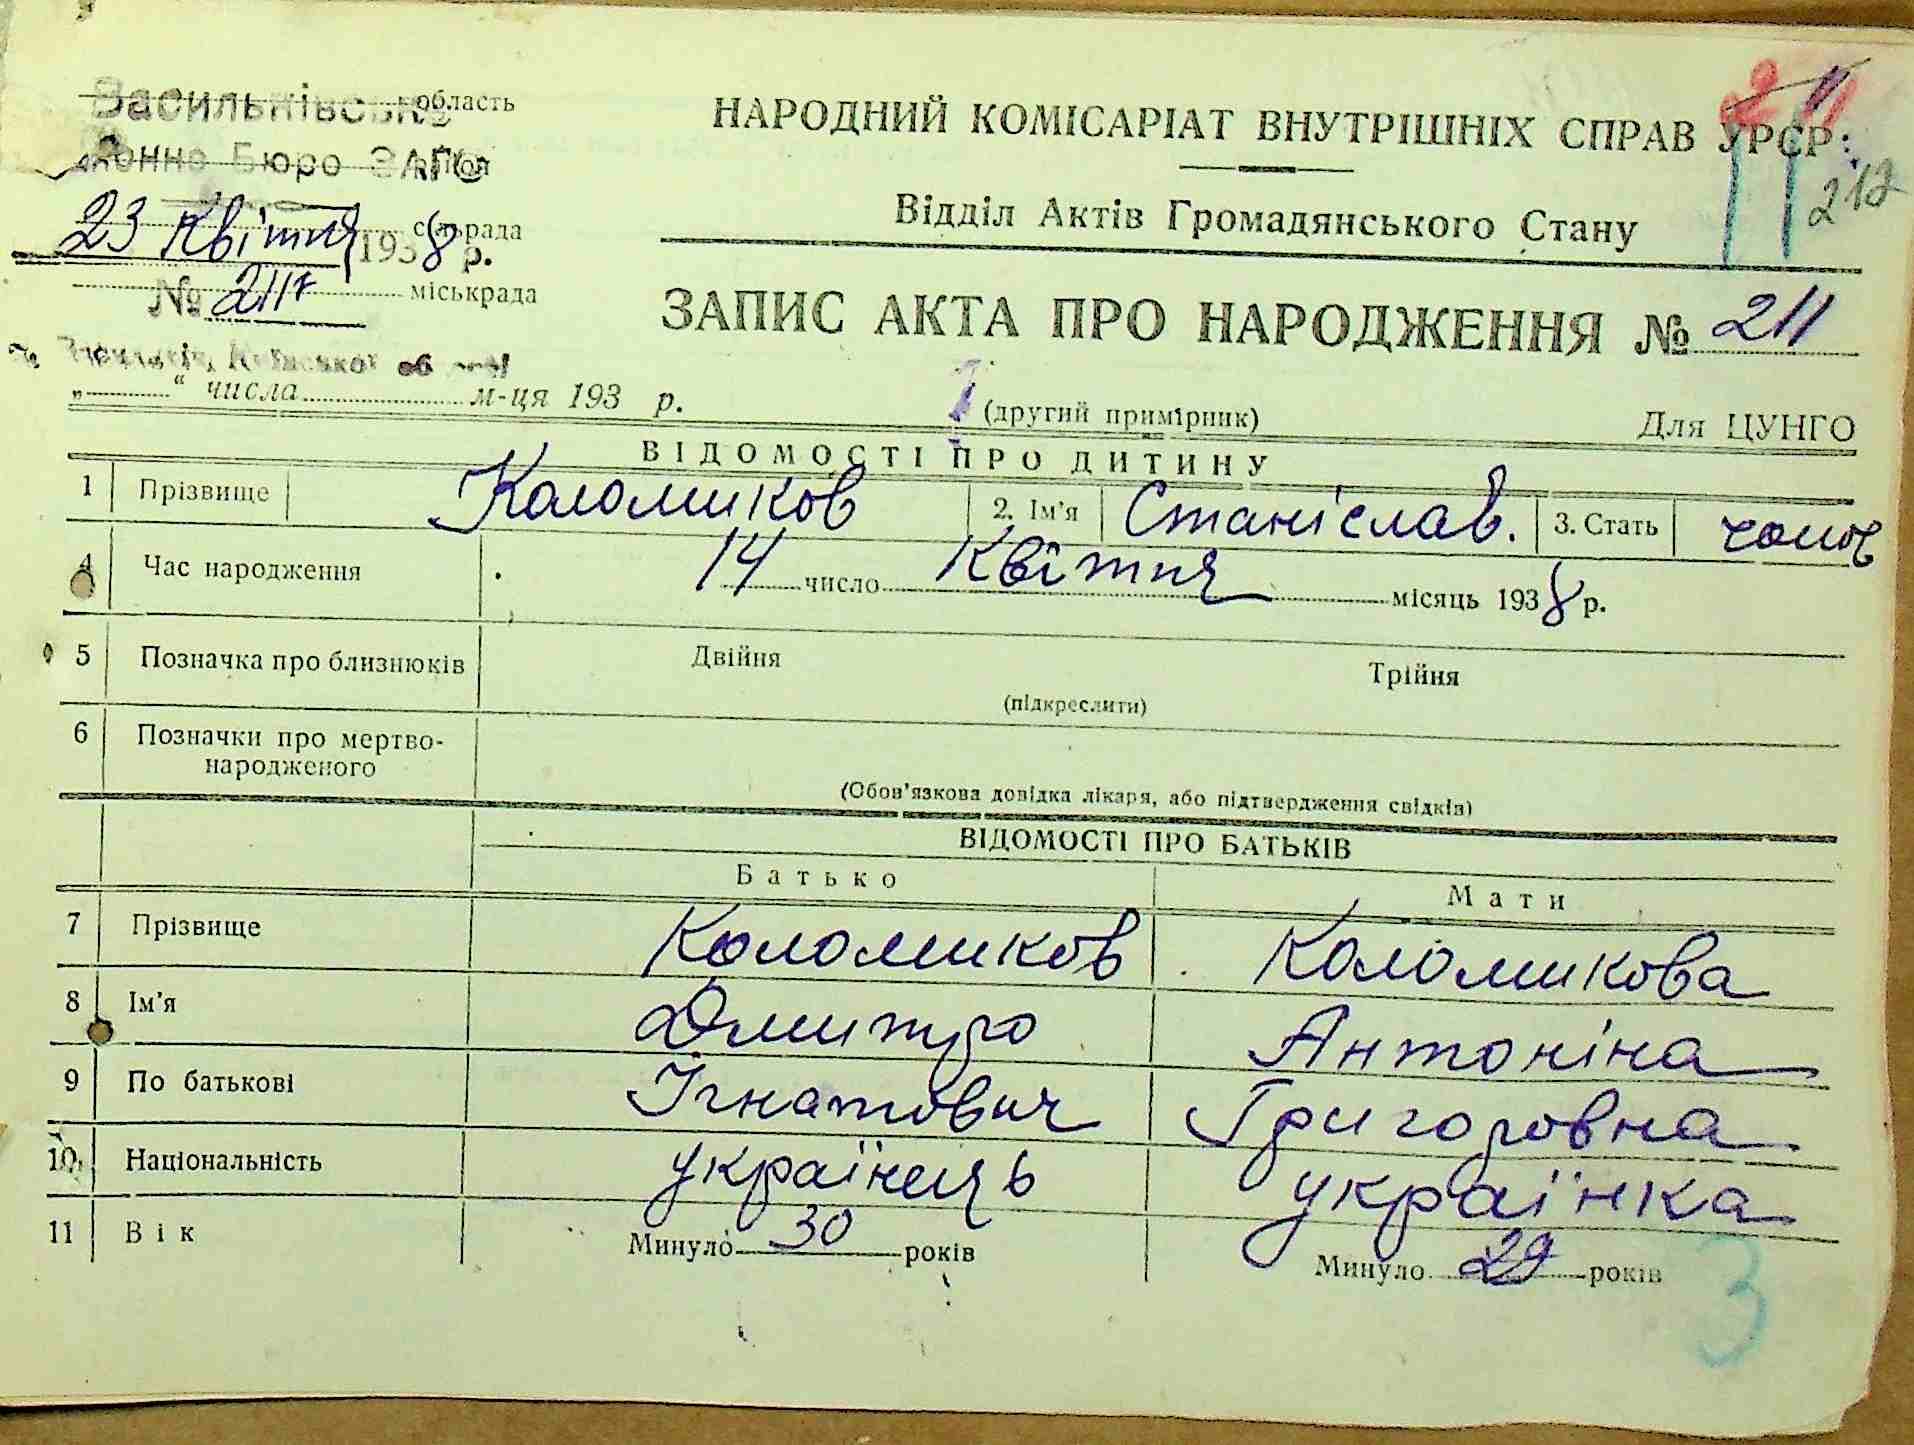 Васильківське область
Бюро ЗАГС район
23 Квітня 1938 р. сільрада
№ 211 міськрада
Київської
„ “ числа м-ця 193 р.
НАРОДНИЙ КОМІСАРІАТ ВНУТРІШНІХ СПРАВ УРСР:
212
Відділ Актів Громадянського Стану
ЗАПИС АКТА ПРО НАРОДЖЕННЯ № 211
(другий примірник) Для ЦУНГО
ВІДОМОСТІ ПРО ДИТИНУ
1 Прізвище Коломиков 2. Ім'я Станіслав. 3. Стать чолов
4 Час народження 14 число Квітня місяць 1938 р.
5 Позначка про близнюків Двійня Трійня
(підкреслити)
6 Позначки про мертво-
народженого
(Обов'язкова довідка лікаря, або підтвердження свідків)
ВІДОМОСТІ ПРО БАТЬКІВ
Батько Мати
7 Прізвище Коломиков Коломикова
8 Ім'я Дмитро Антоніна
9 По батькові Ігнатович Григоровна
10 Національність українець українка
11 Вік Минуло 30 років Минуло 29 років
3